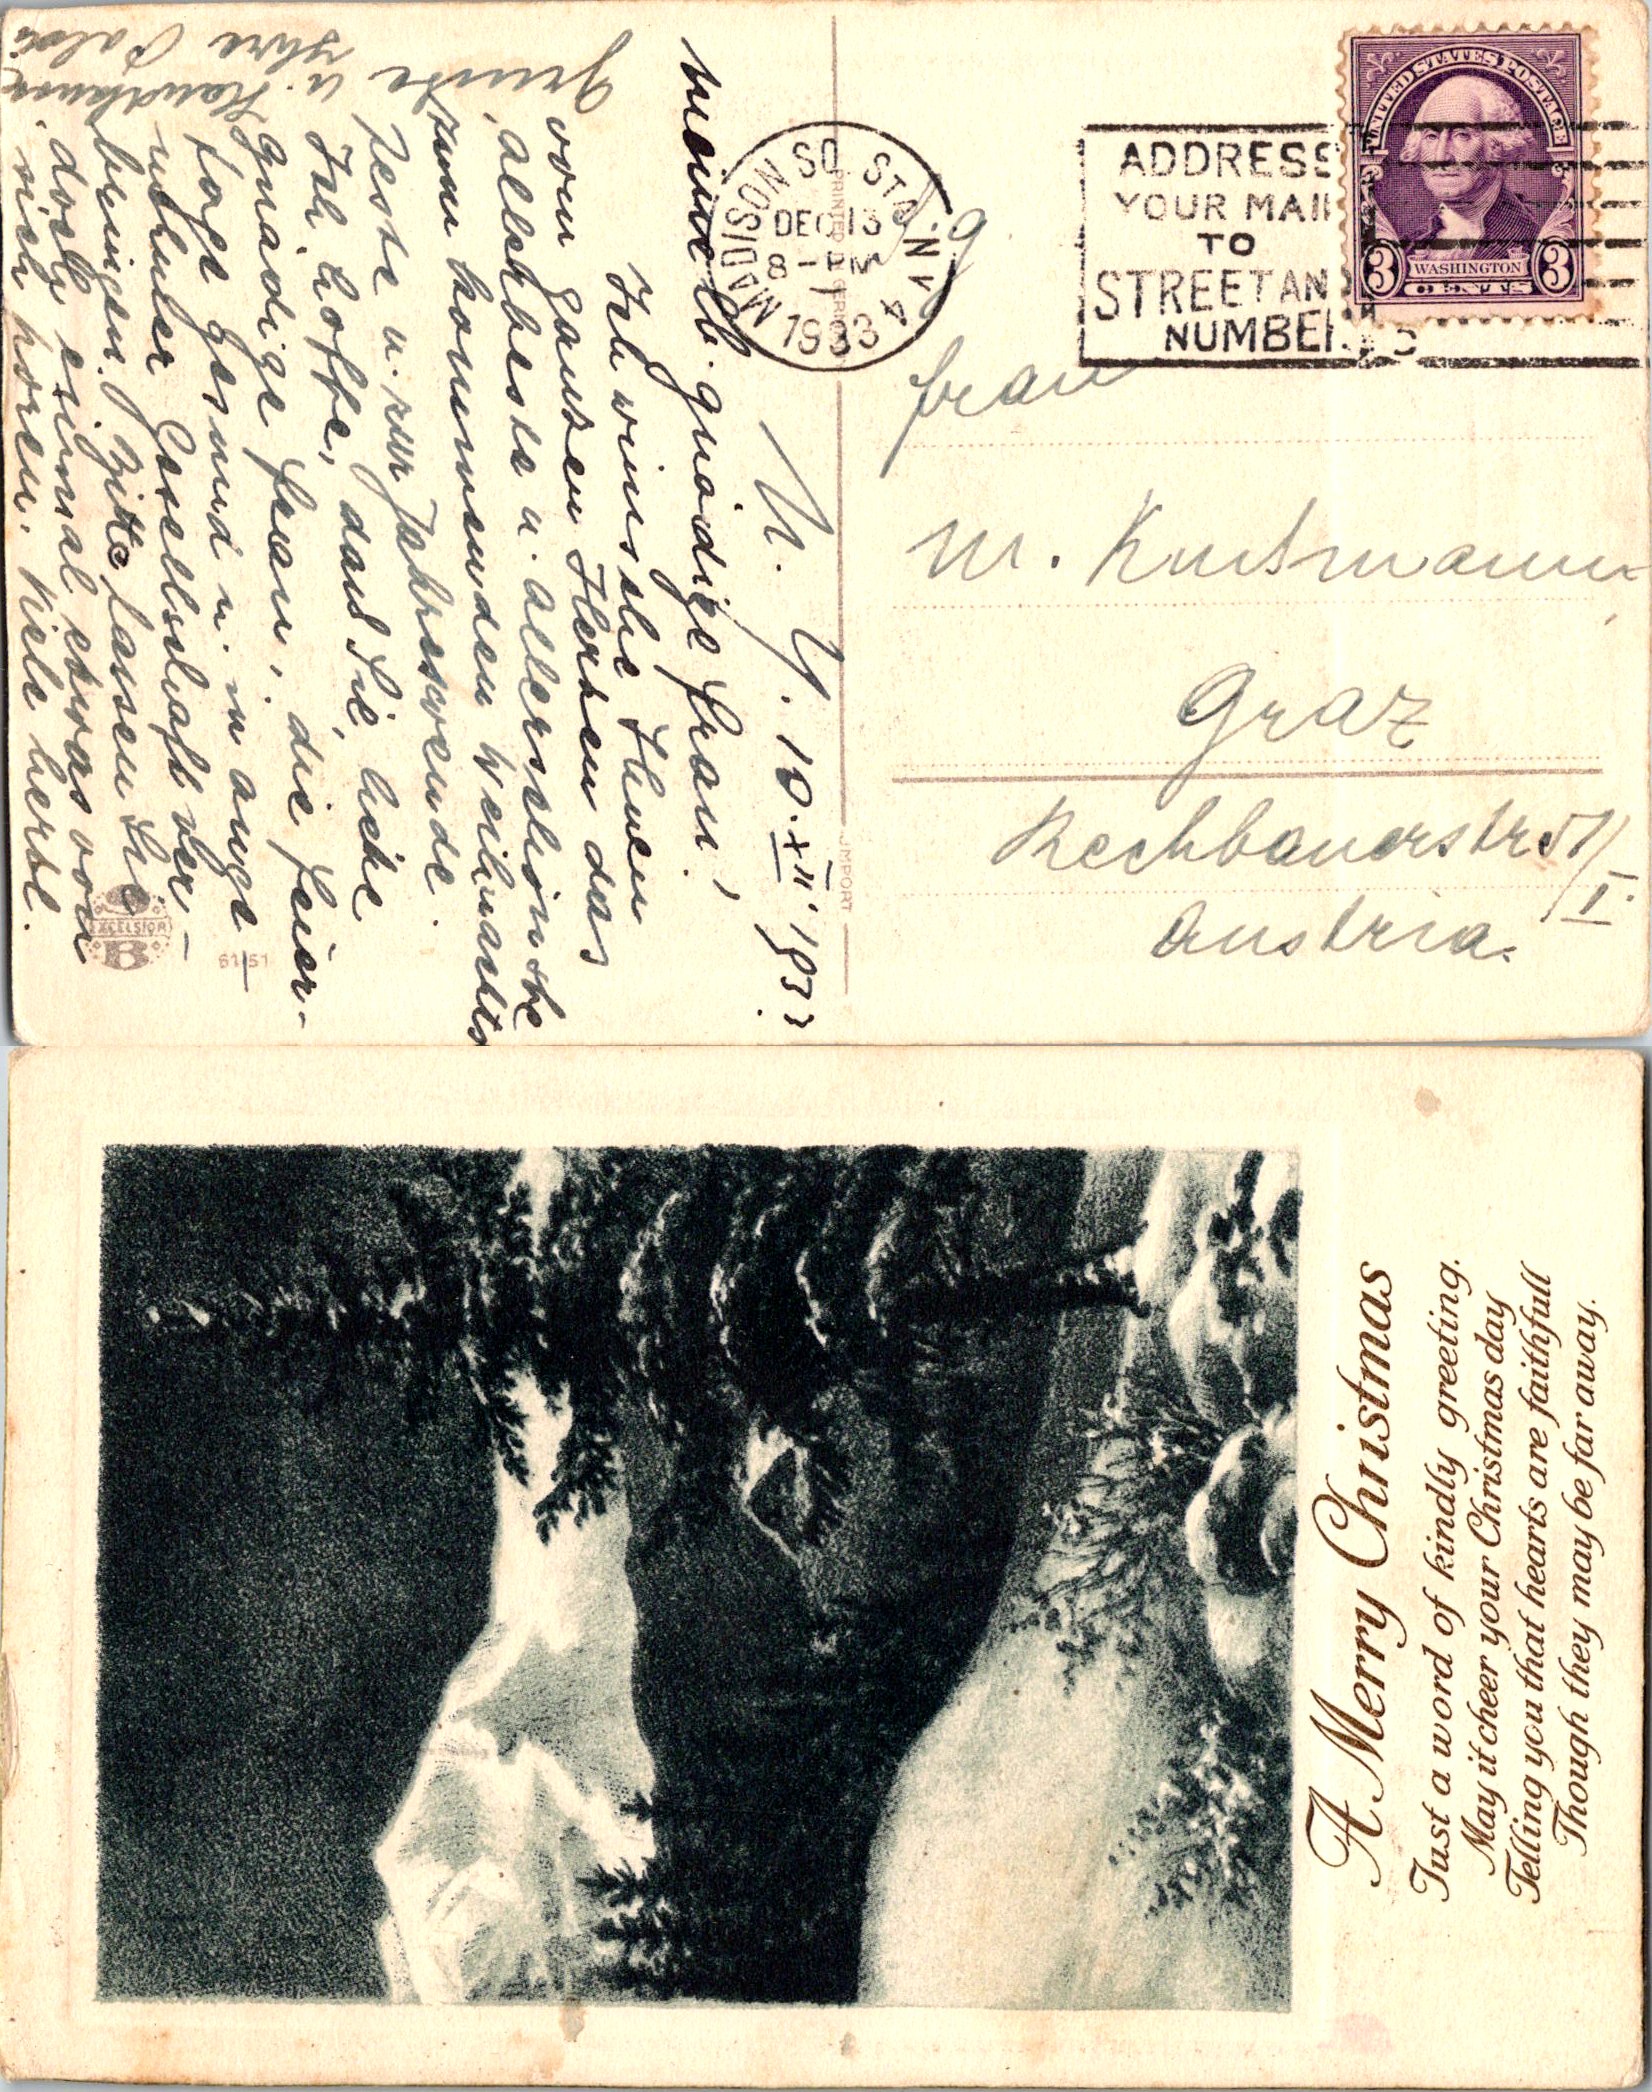 N. Y. 10. XII. 1933.
meine lb. gnädige Frau!
Ich wünsche Ihnen
vom ganzen Herzen das
allerbeste u. allerschönste
zum kommenden Weihnachts
feste u. zur Jahreswende.
Ich hoffe, dass Sie, liebe
gnädige Frau, die Feier-
tage gesund u. in ange-
nehmer Gesellschaft ver-
bringen. Bitte lassen Sie
doch einmal etwas von
sich hören. Viele herzl.
Grüsse u. Handküsse
Ihre
MADISON SQ. STA. N.Y.
DEC 13
8-PM
1933
ADDRESS
YOUR MAIL
TO
STREET AND
NUMBER
UNITED STATES POSTAGE
3 WASHINGTON 3
CENTS
PRINTED
IMPORT
EXCELSIOR
B
61151
Frau
M. Kutsmann
Graz
Rechbauerstr 51/
I.
Austria.
A Merry Christmas
Just a word of kindly greeting.
May it cheer your Christmas day
Telling you that hearts are faithfull
Though they may be far away.